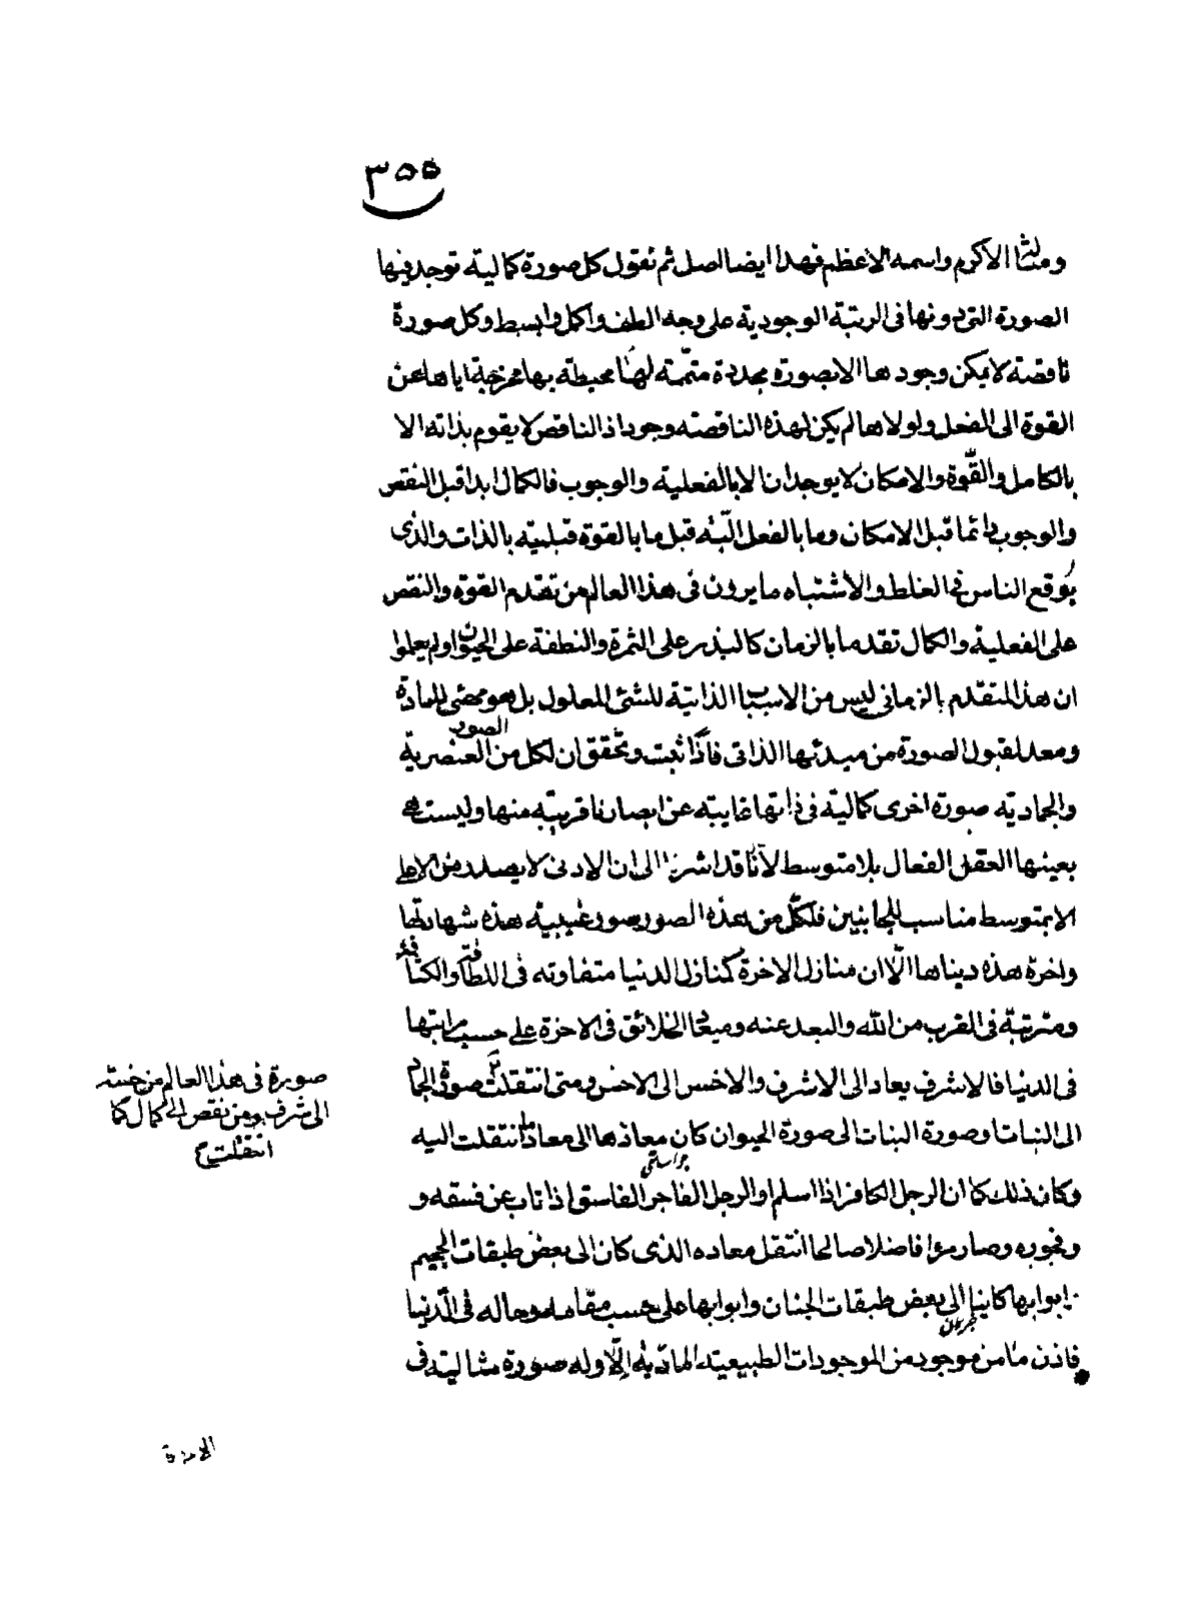 ٣٥٥
ومثالنا الاكرم واسمه الاعظم فهذا ايضا اصل ثم نقول كل صورة كمالية توجد فيها
الصورة التى دونها فى الرتبة الوجودية على وجه الطف واكمل وابسط وكل صورة
ناقصة لا يمكن وجودها الا بصورة مجددة متممة لها محيطة بها مخرجة اياها عن
القوة الى الفعل ولولاها لم يكن لهذه الناقصة وجود اذ الناقص لا يقوم بذاته الا
بالكامل والقوة والامكان لا يوجدان الا بالفعلية والوجوب فالكمال ابدا قبل النقص
والوجوب دائما قبل الامكان وما بالفعل البتة قبل ما بالقوة قبلية بالذات والذى
يوقع الناس فى الغلط والاشتباه ما يرون فى هذا العالم من تقدم القوة والنقص
على الفعلية والكمال تقدما بالزمان كالبذر على الثمرة والنطفة على الحيوان ولم يعلموا
ان هذا المتقدم بالزمانى ليس من الاسباب الذاتية للشئ المعلول بل هو مهيئ للمادة
ومعد لقبول الصورة من مبدئها الذاتى فاذا ثبت وتحقق ان لكل من الصور العنصرية
والجمادية صورة اخرى كمالية فى ذاتها غايبة عن ابصارنا قريبة منها وليست هى
بعينها العقل الفعال بلا متوسط لانا قد اشرنا الى ان الادنى لا يصدر من الاعلى
الا بمتوسط مناسب للجانبين فلكل من هذه الصور صور غيبية هذه شهادتها
واخرة هذه دنياها الا ان منازل الاخرة كمنازل الدنيا متفاوتة فى اللطافة والكثافة
ومترتبة فى القرب من الله والبعد عنه ومعاد الخلائق فى الاخرة على حسب مراتبها
فى الدنيا فالاشرف يعاد الى الاشرف والاخس الى الاخس ومتى انتقلت صورة الجماد
صورة فى هذا العالم من خسة
الى شرف ومن نقص الى كمال كما
انتقلت
الى النبات وصورة النبات الى صورة الحيوان كان معادها الى معاد ما انتقلت اليه
وكان ذلك كما ان الرجل الكافر اذا اسلم او الرجل الفاجر الفاسق اذا تاب عن فسقه و
وفجوره وصار مرءا فاضلا صالحا انتقل معاده الذى كان الى بعض طبقات الجحيم
وابوابها كاينا الى بعض طبقات الجنان وابوابها على حسب مقامه وحاله فى الدنيا
فاذن ما من موجود من الموجودات الطبيعية المادية الا وله صورة مثالية فى
الاخرة